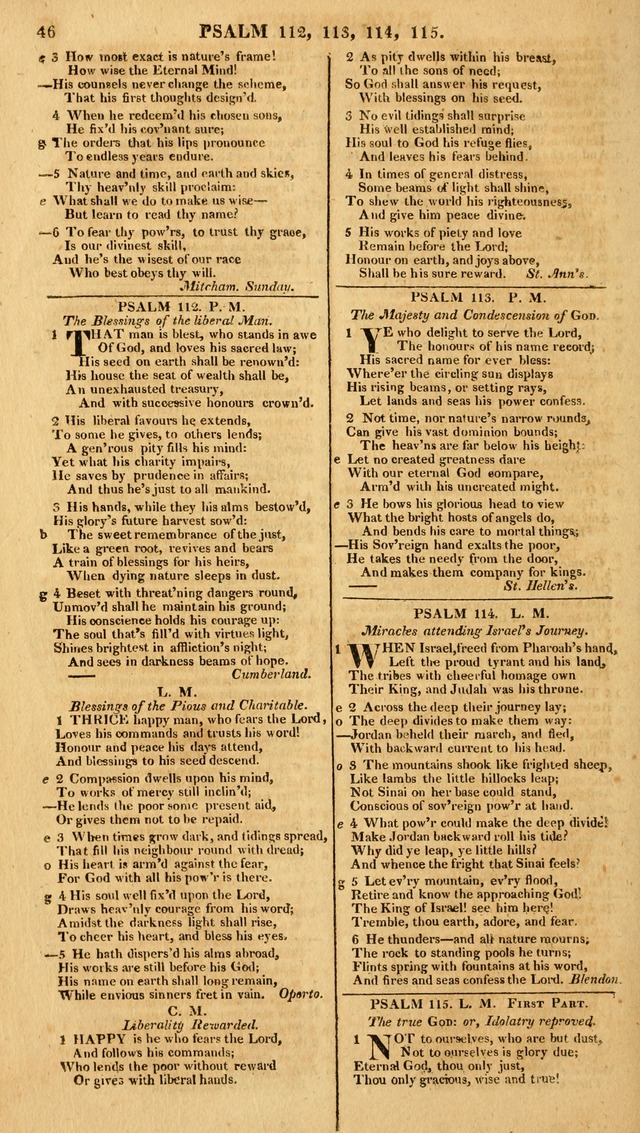 46 PSALM 112, 113, 114, 115.
e 3 How most exact is nature's frame!
How wise the Eternal Mind!
—His counsels never change the scheme,
That his first thoughts design'd.
4 When he redeem'd his chosen sons,
He fix'd his cov'nant sure;
g The orders that his lips pronounce
To endless years endure.
—5 Nature and time, and earth and skies,
Thy heav'nly skill proclaim:
e What shall we do to make us wise—
But learn to read thy name?
—6 To fear thy pow'rs, to trust thy grace,
Is our divinest skill,
And he's the wisest of our race
Who best obeys thy will.
Mitcham. Sunday.
PSALM 112. P. M.
The Blessings of the liberal Man.
1 THAT man is blest, who stands in awe
Of God, and loves his sacred law;
His seed on earth shall be renown'd:
His house the seat of wealth shall be,
An unexhausted treasury,
And with successive honours crown'd.
2 His liberal favours he extends,
To some he gives, to others lends;
A gen'rous pity fills his mind:
Yet what his charity impairs,
He saves by prudence in affairs;
And thus he's just to all mankind.
3 His hands, while they his alms bestow'd,
His glory's future harvest sow'd:
b The sweet remembrance of the just,
Like a green root, revives and bears
A train of blessings for his heirs,
When dying nature sleeps in dust.
g 4 Beset with threat'ning dangers round,
Unmov'd shall he maintain his ground;
His conscience holds his courage up:
The soul that's fill'd with virtues light,
Shines brightest in affliction's night;
And sees in darkness beams of hope.
—— Cumberland.
L. M.
Blessings of the Pious and Charitable.
1 THRICE happy man, who fears the Lord,
Loves his commands and trusts his word!
Honour and peace his days attend,
And blessings to his seed descend.
e 2 Compassion dwells upon his mind,
To works of mercy still inclin'd;
—He lends the poor some present aid,
Or gives them not to be repaid.
e 3 When times grow dark, and tidings spread,
That fill his neighbour round with dread;
o His heart is arm'd against the fear,
For God with all his pow'r is there.
g 4 His soul well fix'd upon the Lord,
Draws heav'nly courage from his word;
Amidst the darkness light shall rise,
To cheer his heart, and bless his eyes.
—5 He hath dispers'd his alms abroad,
His works are still before his God;
His name on earth shall long remain,
While envious sinners fret in vain. Oporto.
C. M.
Liberality Rewarded.
1 HAPPY is he who fears the Lord,
And follows his commands;
Who lends the poor without reward
Or gives with liberal hands.
2 As pity dwells within his breast,
To all the sons of need;
So God shall answer his request,
With blessings on his seed.
3 No evil tidings shall surprise
His well established mind;
His soul to God his refuge flies,
And leaves his fears behind.
4 In times of general distress,
Some beams of light shall shine,
To shew the world his righteousness,
And give him peace divine.
5 His works of piety and love
Remain before the Lord;
Honour on earth, and joys above,
Shall be his sure reward. St. Ann's.
PSALM 113. P. M.
The Majesty and Condescension of GOD.
1 YE who delight to serve the Lord,
The honours of his name record;
His sacred name for ever bless:
Where'er the circling sun displays
His rising beams, or setting rays,
Let lands and seas his power confess.
2 Not time, nor nature's narrow rounds,
Can give his vast dominion bounds;
The heav'ns are far below his height:
e Let no created greatness dare
With our eternal God compare,
Arm'd with his uncreated might.
e 3 He bows his glorious head to view
What the bright hosts of angels do,
And bends his care to mortal things;
—His Sov'reign hand exalts the poor,
He takes the needy from the door,
And makes them company for kings.
—— St. Hellen's.
PSALM 114. L. M.
Miracles attending Israel's Journey.
1 WHEN Israel, freed from Pharoah's hand,
Left the proud tyrant and his land,
The tribes with cheerful homage own
Their King, and Judah was his throne.
e 2 Across the deep their journey lay;
o The deep divides to make them way:
—Jordan beheld their march, and fled,
With backward current to his head.
o 3 The mountains shook like frighted sheep,
Like lambs the little hillocks leap;
Not Sinai on her base could stand,
Conscious of sov'reign pow'r at hand.
e 4 What pow'r could make the deep divide!
Make Jordan backward roll his tide?
Why did ye leap, ye little hills?
And whence the fright that Sinai feels?
g 5 Let ev'ry mountain, ev'ry flood,
Retire and know the approaching God!
The King of Israel! see him here!
Tremble, thou earth, adore, and fear.
6 He thunders—and all nature mourns;
The rock to standing pools he turns;
Flints spring with fountains at his word,
And fires and seas confess the Lord. Blendon.
PSALM 115. L. M. FIRST PART.
The true GOD: or, Idolatry reproved.
1 NOT to ourselves, who are but dust,
Not to ourselves is glory due;
Eternal God, thou only just,
Thou only gracious, wise and true!